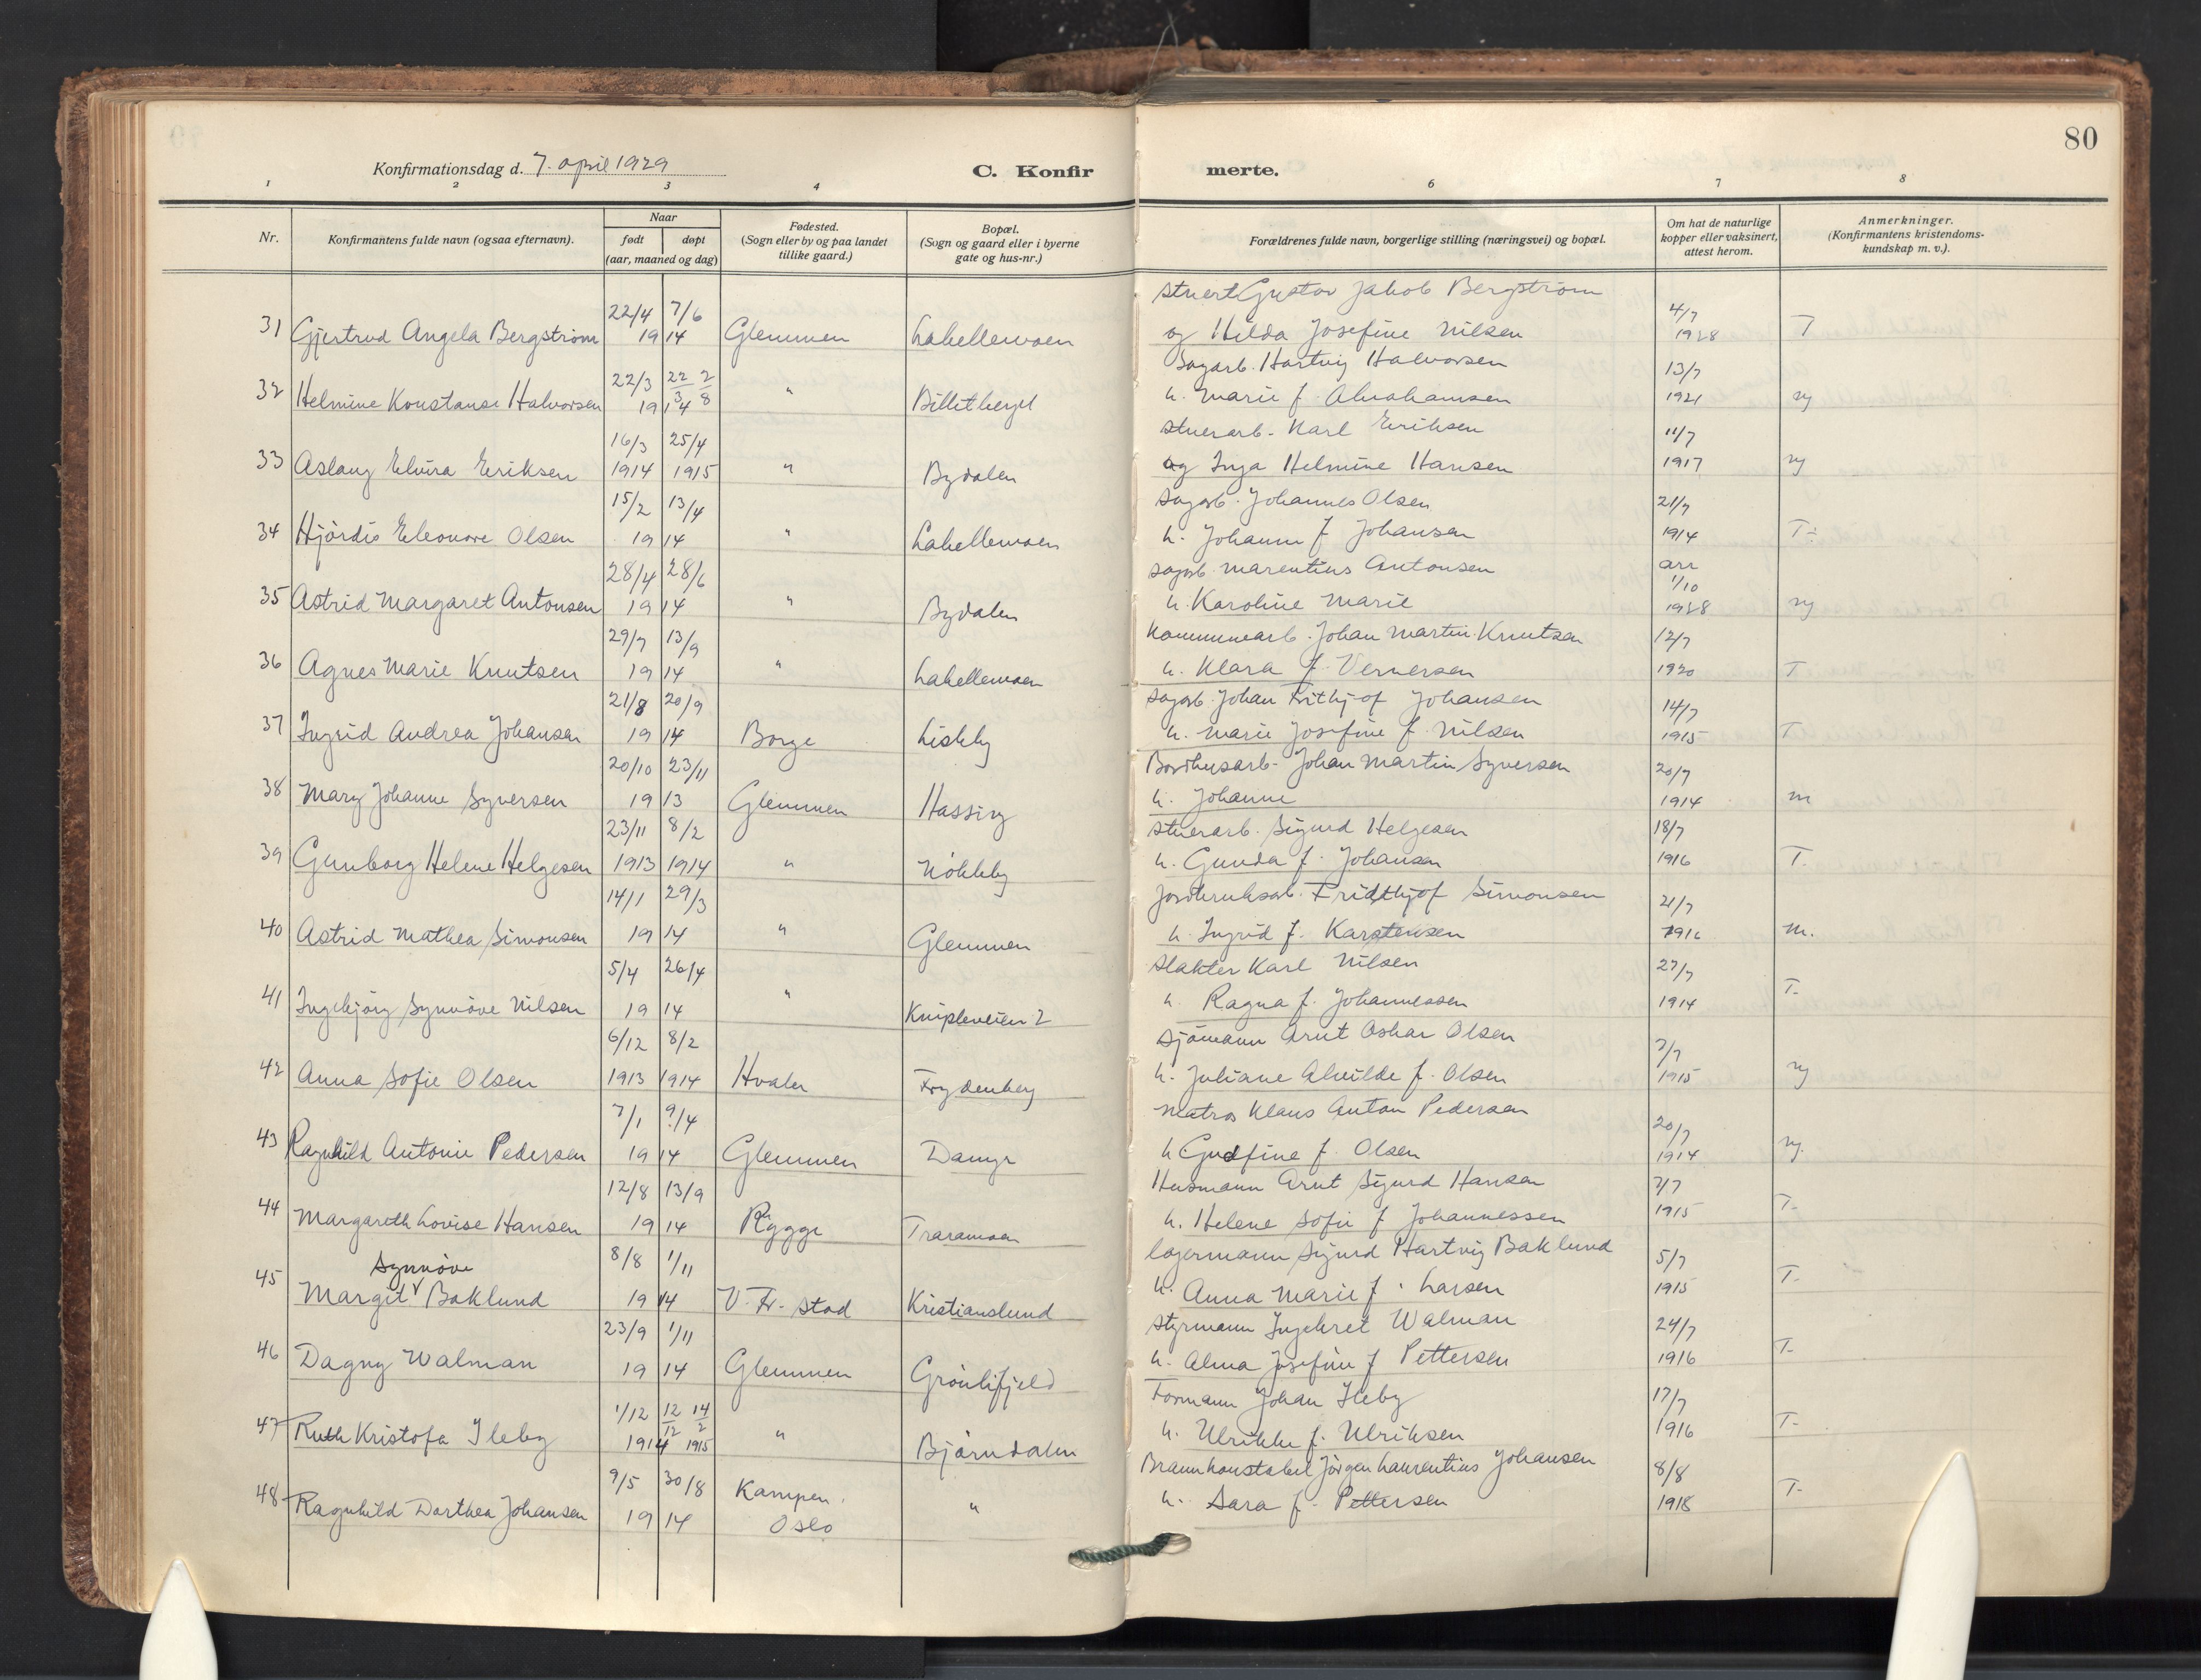 80
Konfirmationsdag d. 7. april 1929
C. Konfir
merte.
1 2 3 4 6 7 8
Nr.
Konfirmantens fulde navn (ogsaa efternavn).
Naar
født døpt
(aar, maaned og dag)
Fødested.
(Sogn eller by og paa landet
tillike gaard.)
Bopæl.
(Sogn og gaard eller i byerne
gate og hus-nr.)
Forældrenes fulde navn, borgerlige stilling (næringsvei) og bopæl.
Om hat de naturlige
kopper eller vaksinert,
attest herom.
Anmerkninger.
(Konfirmantens kristendoms-
kundskap m. v.).
Gustav Jakob Bergström
22/4 7/6 4/7
31 Gjertrud Angela Bergström 19 14 Glemmen Lahellemoen og Hilda Josefine Nilsen 1928 T
Sagarb. Hartvig Halvorsen
22/3 22/3 2/8 13/7
32 Helmine Konstanse Halvorsen 1914 " h. Marie f. Abrahamsen 1921
Stuerarb. Karl Eriksen
16/3 25/4 11/7
33 Aslaug Elvira Eriksen 1914 1915 " Bydalen og Inga Helmine Hansen 1917
15/2 13/4 Sagarb. Johannes Olsen 21/7
34 Hjördis Eleonore Olsen 19 14 " Lahellemoen h. Johanne f Johansen 1914 T-
28/4 28/6 Sagarb. Marentius Antonsen arr
1/10
35 Astrid Margaret Antonsen 19 14 " Bydalen h. Karoline Marie 1928
29/7 13/9 Kommunearb. Johan Martin Knutsen 12/7
36 Agnes Marie Knutsen 19 14 " Lahellemoen h. Klara f. Vernersen 1920 T
21/8 20/9 Sagarb. Johan Frithjof Johansen 14/7
37 Ingrid Andrea Johansen 19 14 Borge Lisleby h. Marie Josefine f Nilsen 1915 T
20/10 23/11 Johan Martin Syversen 20/7
38 Mary Johanne Syversen 19 13 Glemmen Hassing h. Johanne 1914 m
23/11 8/2 Stuerarb. Sigurd Helgesen 18/7
39 Gunborg Helene Helgesen 1913 1914 " Nökleby h. Gunda f. Johansen 1916 T.
14/1 29/3 Jordbruksarb. Fridthjof Simonsen 21/7
40 Astrid Mathea Simonsen 19 14 " Glemmen h. Ingrid f. Karstensen 1916 m.
5/4 26/4 Slakter Karl Nilsen 27/7
41 Ingebjörg Synnöve Nilsen 19 14 " Knipleveien 2 h. Ragna f. Johannessen 1914 T-
6/12 8/2 Sjömann Arnt Oskar Olsen 7/7
42 Anna Sofie Olsen 1913 1914 Hvaler Frydenberg h. Juliane Alvilde f. Olsen 1915
7/1 9/4 Matros Klaus Anton Pedersen 20/7
43 Ragnhild Antonie Pedersen 19 14 Glemmen Damyr h Gudfine f. Olsen 1914
12/8 13/9 Husmann Arnt Sigurd Hansen 7/7
44 Margareth Lovise Hansen 19 14 Rygge Traramoen h. Helene Sofie f Johannessen 1915 T-
Synnöve 8/8 1/11 Lagermann Sigurd Hartvig Baklund 5/7
45 Margit Baklund 19 14 V. Fr. stad Kristianslund h. Anna Marie f. Larsen 1915 T-
23/9 1/11 Styrmann Ingebret Walman 24/7
46 Dagny Walman 19 14 Glemmen Grönlifjeld h. Alma Josefine f Pettersen 1916 T-
Formann Johan Ileby
1/12 12/12 14/2 17/7
47 Ruth Kristofa Ileby 1914 1915 " Björndalen h. Ulrikke f. Ulriksen 1916 T-
Brannkonstabel Jörgen Laurentius Johansen
9/5 30/8 Kampen 8/8
48 Ragnhild Dorthea Johansen 19 14 Oslo " h. Sara f. Pettersen 1918 T-